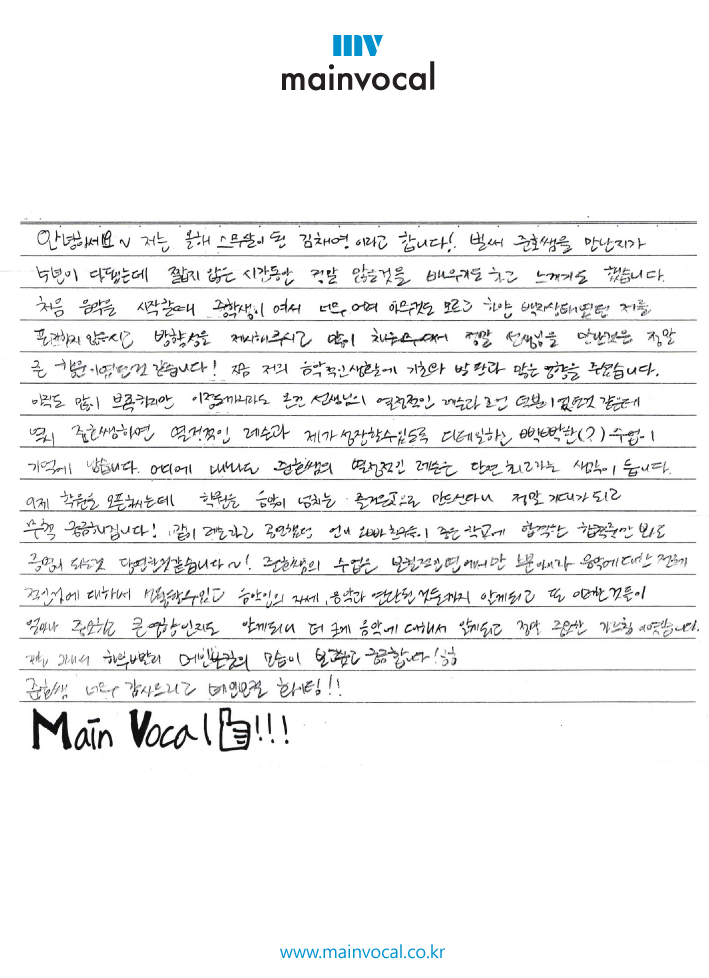 mv
mainvocal
안녕하세요~ 저는 올해 스무살이 된 김채영 이라고 합니다! 벌써 준호쌤을 만난지가
5년이 다됐는데 짧지 않은 시간동안 정말 많은것을 배우기도 하고 느끼기도 했습니다.
처음 음악을 시작할때 중학생이 여서 너무 어려 아무것도 모르고 하얀 백지상태였던 저를
포기하지 않으시고 방향성을 제시해주시고 많이 정말 선생님을 만난것은 정말
큰 행운이였던것 같습니다! 지금 저의 음악적인생활에 기초와 발판과 많은 영향을 주셨습니다.
아직도 많이 부족하지만 이정도까지라도 온건 선생님의 열정적인 레슨과 조언 덕분이 였던것 같은데
역시 준호쌤하면 열정적인 레슨과 제가 성장할수있도록 디테일하신 빡빡한(?) 수업이
기억에 남습니다. 어디에 내놔도 준호쌤의 열정적인 레슨은 단연 최고라는 생각이 듭니다.
이제 학원을 오픈하시는데 학원을 음악이 넘치는 즐거운곳으로 만드신다니 정말 기대가 되고
무척 궁금해집니다! 같이 레슨받고 공연했던 언니 오빠 친구들이 좋은 학교에 합격한 합격률만 봐도
증명이 되는것 당연한것같습니다~! 준호쌤의 수업은 보컬적인면에서만 뿐아니라 음악에대한 전체
적인것에 대해서 생각할수있고 음악인의 자세, 음악과 연관된 것들까지 알게되고 또 이러한것들이
얼마나 중요하고 큰 영향인지도 알게되니 더 크게 음악에 대해서 알게되고 정말 중요한 가르침 이였습니다.
그래서 하루빨리 메인보컬의 모습이 보고싶고 궁금합니다!
준호쌤 너무 감사드리고 메인보컬 화이팅!!
Main Vocal!!!
www.mainvocal.co.kr